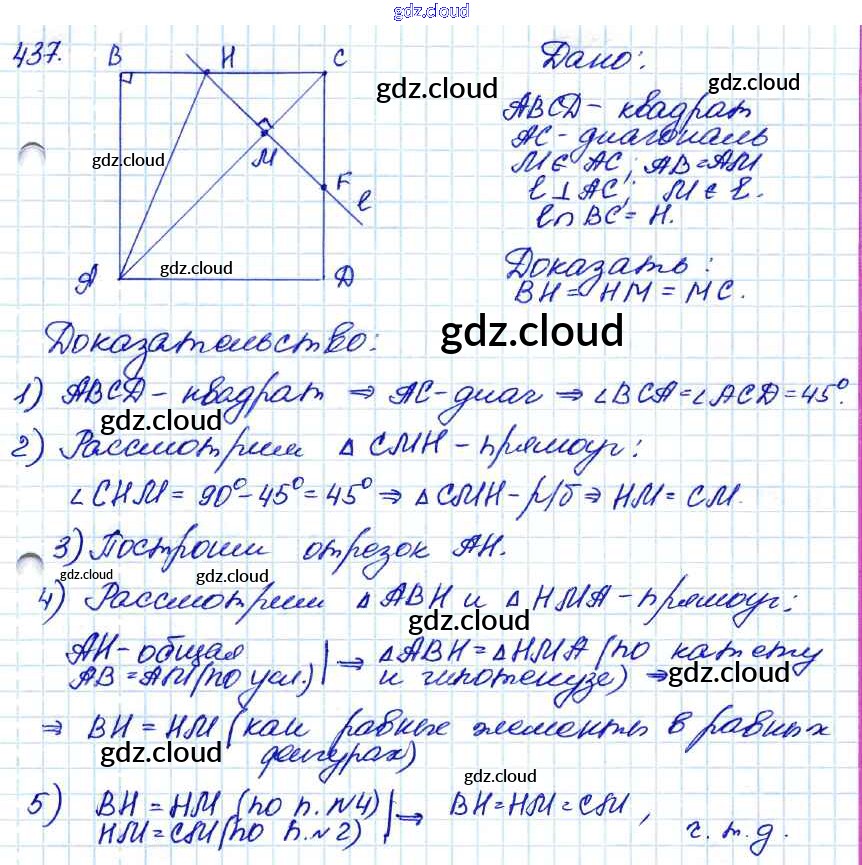 gdz.cloud
437.
B H C
M
F
l
A D
Дано:
ABCD - квадрат
AC - диагональ
M ∈ AC; AB = AM
l ⊥ AC; M ∈ l.
l ∩ BC = H.
Доказать:
BH = HM = MC.
Доказательство:
1) ABCD - квадрат ⇒ AC - диаг ⇒ ∠BCA = ∠ACD = 45°.
2) Рассмотрим △ CMH - прямоуг:
∠CHM = 90° - 45° = 45° ⇒ △ CMH - р/б ⇒ HM = CM.
3) Построим отрезок AH.
4) Рассмотрим △ ABH и △ HMA - прямоуг:
AH - общая
AB = AM (по усл.) | ⇒ △ABH = △HMA (по катету
и гипотенузе) ⇒
⇒ BH = HM (как равные элементы в равных
фигурах)
5) BH = HM (по п. №4)
HM = CM (по п. №2) | ⇒ BH = HM = CM,
ч. т. д.
gdz.cloud
gdz.cloud
gdz.cloud
gdz.cloud
gdz.cloud
gdz.cloud
gdz.cloud
gdz.cloud
gdz.cloud
gdz.cloud
gdz.cloud
gdz.cloud
gdz.cloud